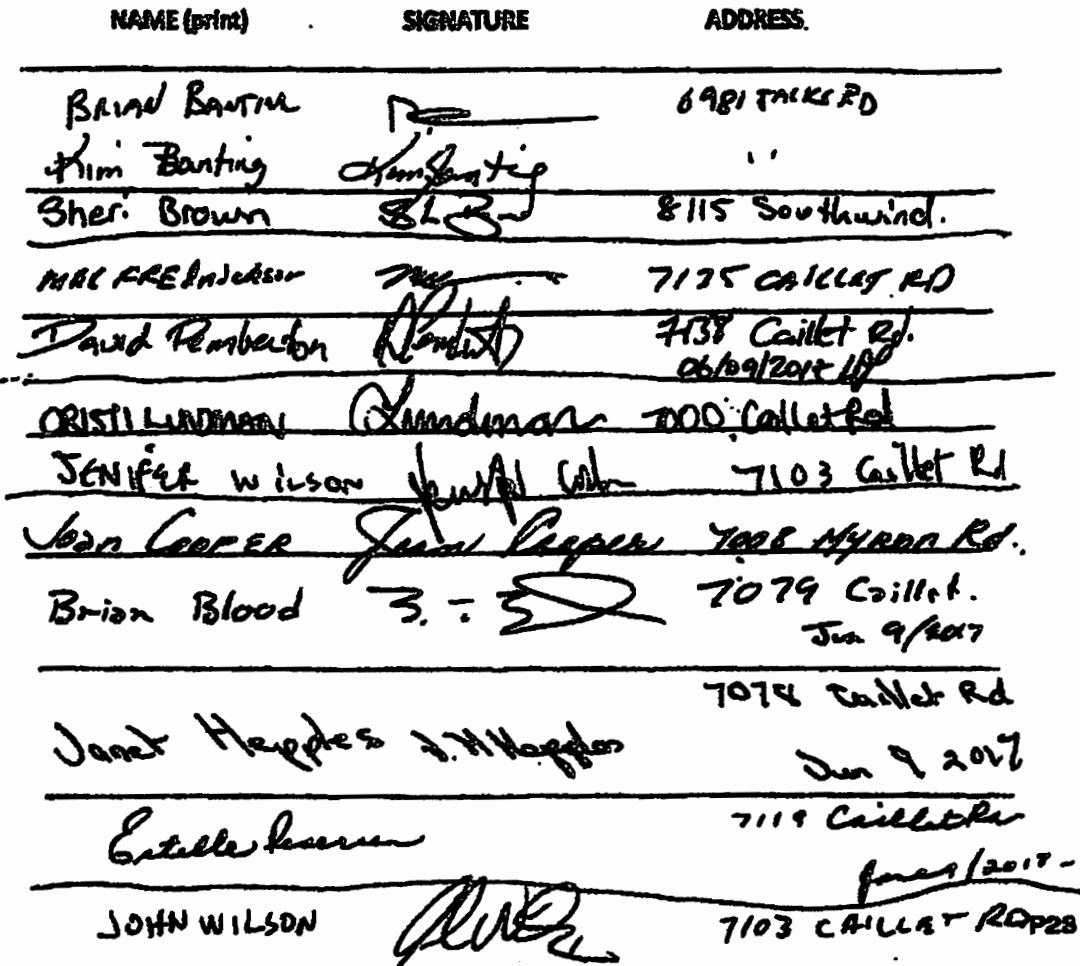 NAME (print) SIGNATURE ADDRESS.
BRIAN BANTING 6981 JACKS RD
Kim Banting Kim Banting ''
Sheri Brown SLB 8115 Southwind.
Anderson CAILLET RD
David Pemberton 7138 Caillet Rd.
06/09/2017 DP
CRISTI LUNDMAN Lundman 7000 Caillet Rd
JENIFER WILSON 7103 Caillet Rd
Joan COOPER Joan Cooper 7008 MYRON Rd.
Brian Blood 7079 Caillet.
Jun 9/2017
7078 Caillet Rd
Janet Hepples J. H Hepples
Jun 9 2017
Estelle 7119 Caillet Rd
JOHN WILSON 7103 CAILLET RD P28